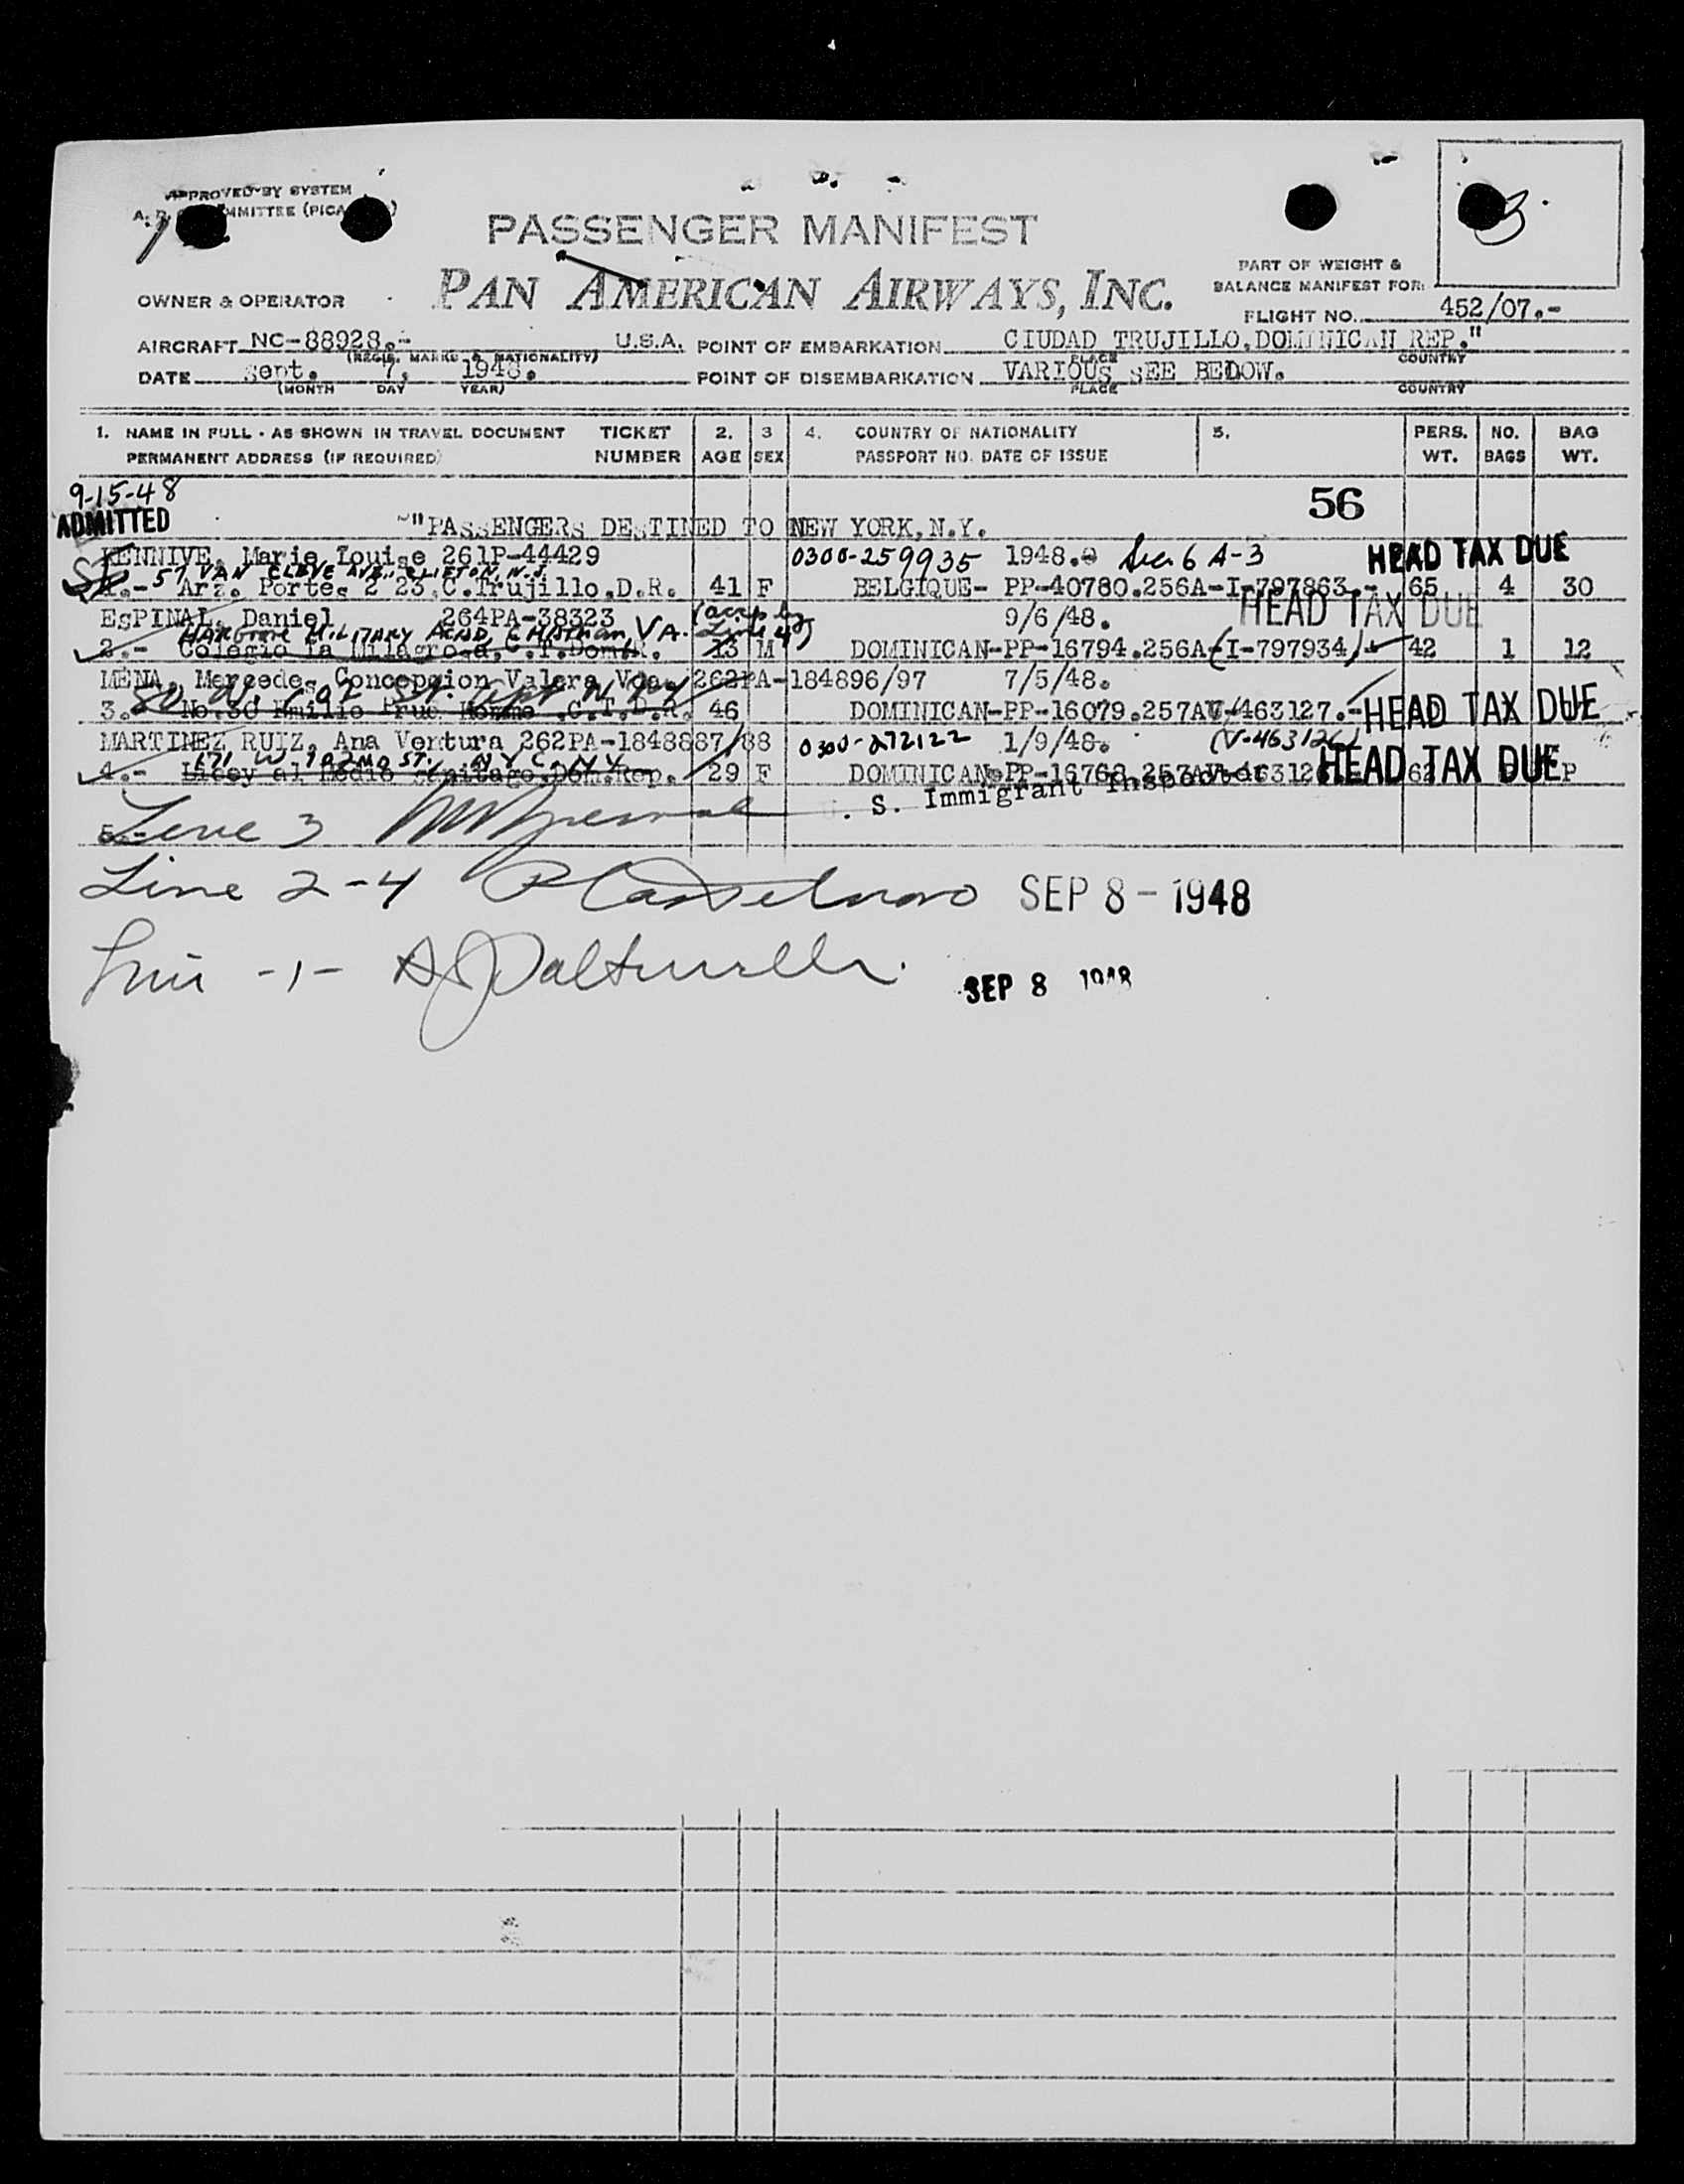 APPROVED BY SYSTEM
PASSENGER MANIFEST
3.
PAN AMERICAN AIRWAYS, INC.
PART OF WEIGHT &
BALANCE MANIFEST FOR:
OWNER & OPERATOR
FLIGHT NO. 452/07.-
AIRCRAFT NC-88928.- U.S.A. POINT OF EMBARKATION CIUDAD TRUJILLO,DOMINICAN REP."
(REGIS. MARKS & NATIONALITY) PLACE COUNTRY
DATE Sept. 7, 1948. POINT OF DISEMBARKATION VARIOUS SEE BELOW.
(MONTH DAY YEAR) PLACE COUNTRY
1. NAME IN FULL - AS SHOWN IN TRAVEL DOCUMENT TICKET 2. 3 4. COUNTRY OF NATIONALITY 5. PERS. NO. BAG
PERMANENT ADDRESS (IF REQUIRED) NUMBER AGE SEX PASSPORT NO. DATE OF ISSUE WT. BAGS WT.
9-15-48
ADMITTED
56
"PASSENGERS DESTINED TO NEW YORK,N.Y.
KENNIVE, Marie Louise 261P-44429 0300-259935 1948. Sec. 6 A-3 HEAD TAX DUE
57 VAN CLEVE AVE., CLIFTON, N.J.
1.- Arz. Portes 2 23,C.Trujillo,D.R. 41 F BELGIQUE- PP-40780.256A-I-797863.- 65 4 30
HEAD TAX DUE
ESPINAL, Daniel 264PA-38323 9/6/48.
HARGRAVE MILITARY ACAD, CHATHAM, VA.
2.- Colegio la Milagrosa,C.T.Dom.R. 13 M DOMINICAN-PP-16794.256A-(I-797934) 42 1 12
MENA, Mercedes Concepcion Valera Vda. 262PA-184896/97 7/5/48.
3. No.30 Emilio Prud Homme .C.T.D.R. 46 DOMINICAN-PP-16079.257AV-463127.- HEAD TAX DUE
MARTINEZ RUIZ, Ana Ventura 262PA-1848887/88 0300-272122 1/9/48. (V-463126)
571 W. 192ND ST., NYC, NY
4.- Licey al Medio Santiago,Dom.Rep. 29 F DOMINICAN PP-16768.257AV-463126 HEAD TAX DUE
U. S. Immigrant Inspector
5.-
Line 3
Line 2-4 SEP 8 - 1948
Line -1- SEP 8 1948